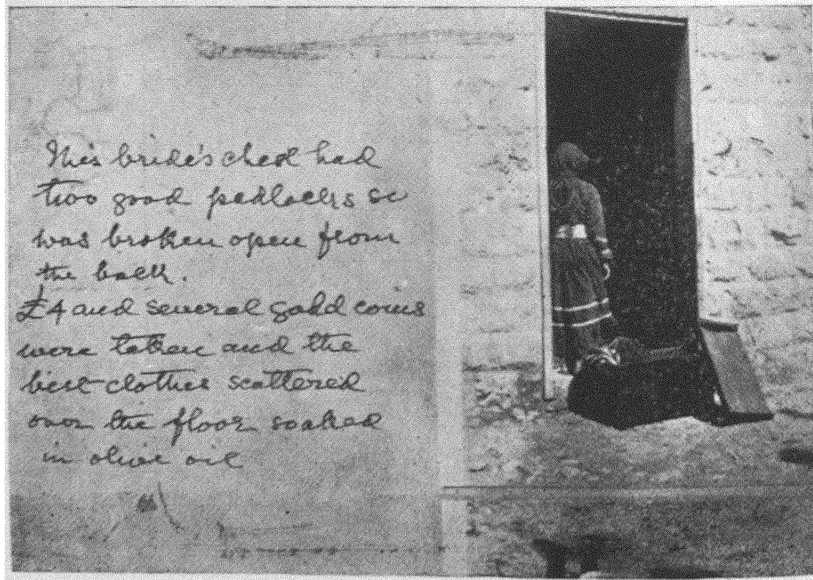 This bride's chest had
two good padlocks so
was broken open from
the back.
£4 and several gold coins
were taken and the
best clothes scattered
over the floor soaked
in olive oil